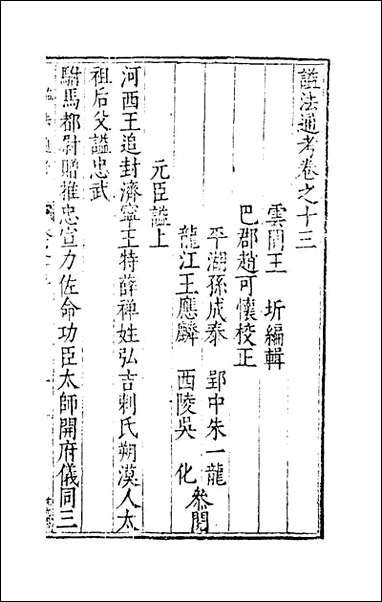 諡法通考卷之十三
雲間王　圻編輯
巴郡趙可懷校正
平湖孫成泰　郢中朱一龍
龍江王應麟　西陵吳　化
參閱
元臣諡上
河西王追封濟寧王特薛禅姓弘吉剌氏朔漠人太
祖后父諡忠武
駙馬都尉贈推忠宣力佐命功臣太師開府儀同三